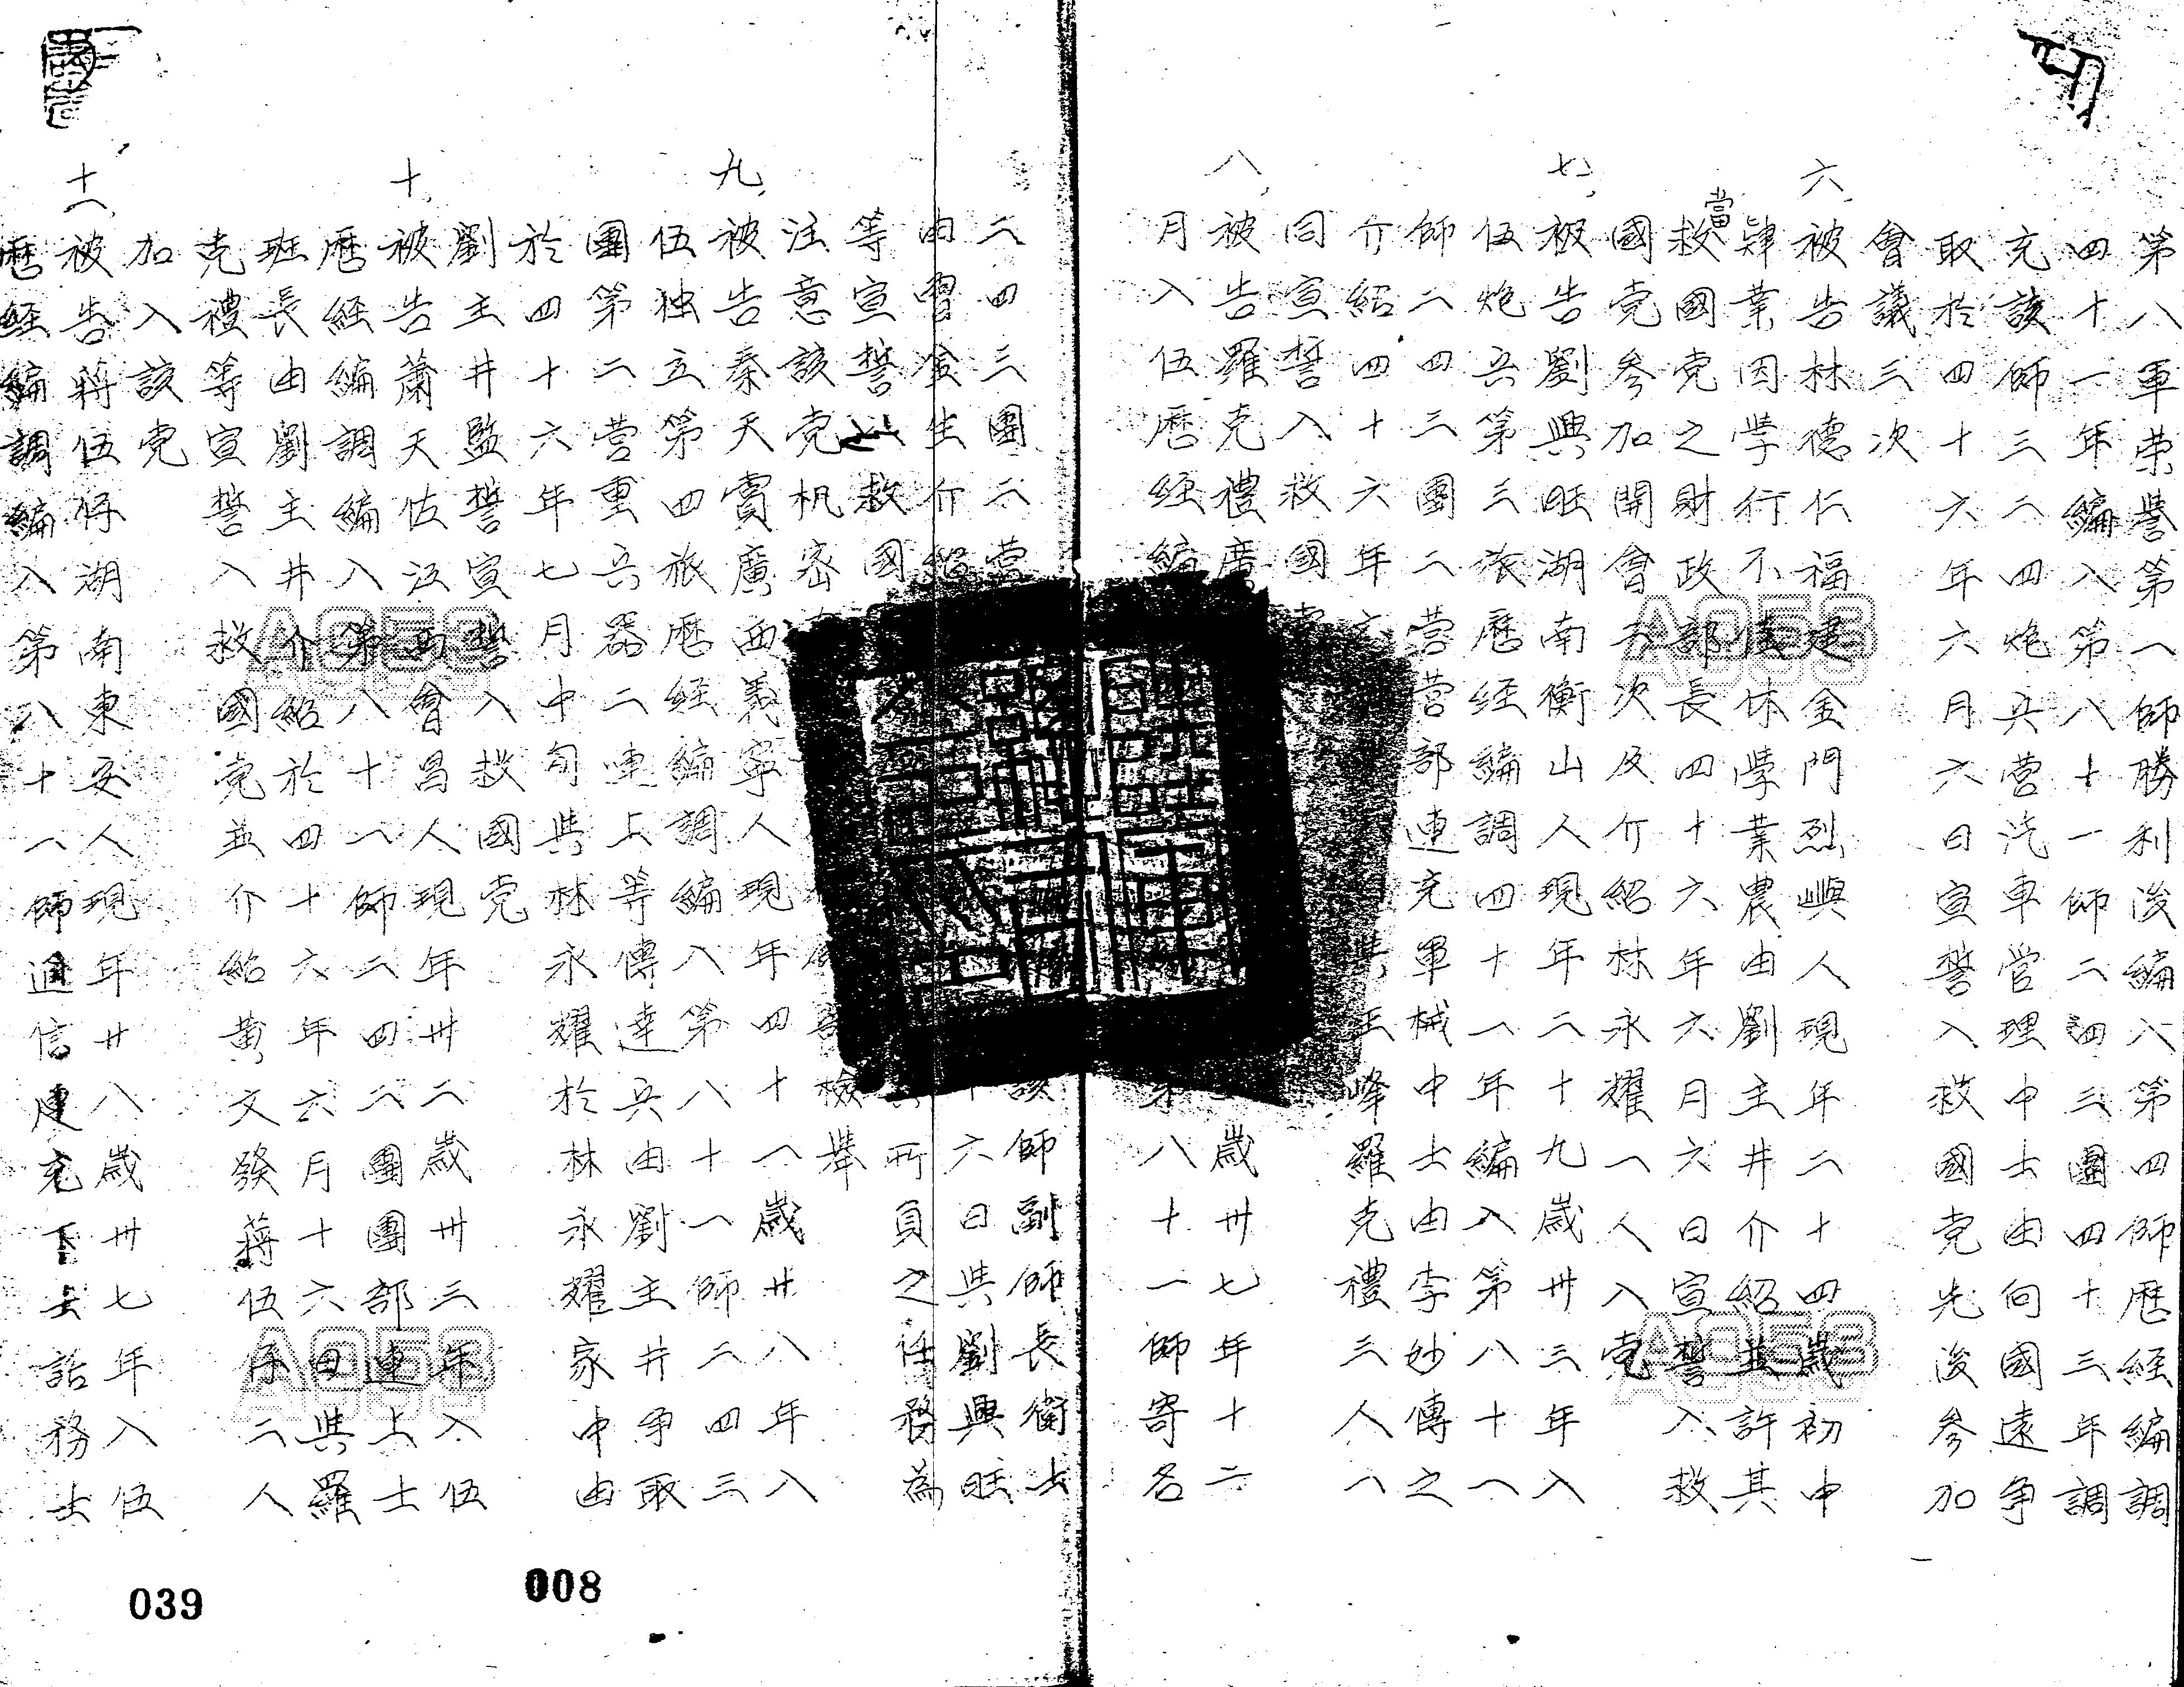 第八軍榮譽第一師勝利後編入第四師歷經編調
四十一年編入第八十一師二四三團四十三年調
充該師三二四炮兵營汽車管理中士由向國遠爭
取於四十六年六月六日宣誓入救國党先後參加
會議三次
六、被告林德仁福建金門烈嶼人現年二十四歲初中
肄業因學行不佳休學業農由劉主井介紹並許其
當救國党之財政部長四十六年六月六日宣誓入救
國党參加開會五次及介紹林永耀一人入党
七、被告劉興旺湖南衡山人現年二十九歲卅三年入
伍炮兵第三旅歷經編調四十一年編入第八十一
師二四三團二營營部連充軍械中士由李妙傳之
介紹四十六年六 王峰羅克禮三人一
同宣誓入救國
八、被告羅克禮廣 歲卅七年十二
月入伍歷經編 第八十一師寄名
二四三團二營 該師副師長衛士
由曾金生介紹 六日與劉興旺
等宣誓入救國 所負之任務為
注意該党机密 檢舉
九、被告秦天賞廣西義寧人現年四十一歲廿八年入
伍独立第四旅歷經編調編入第八十一師二四三
團第二營重兵器二連上等傳達兵由劉主井爭取
於四十六年七月中旬與林永耀於林永耀家中由
劉主井監誓宣誓入救國党
十、被告蕭天佐江西會昌人現年卅二歲卅三年入伍
歷經編調編入第八十一師二四二團團部連上士
班長由劉主井介紹於四十六年六月十六日與羅
克禮等宣誓入救國党並介紹黃文發蔣伍伢二人
加入該党
十一、被告蔣伍伢湖南東安人現年廿八歲卅七年入伍
歷經編調編入第八十一師通信連充下士話務士
039
008